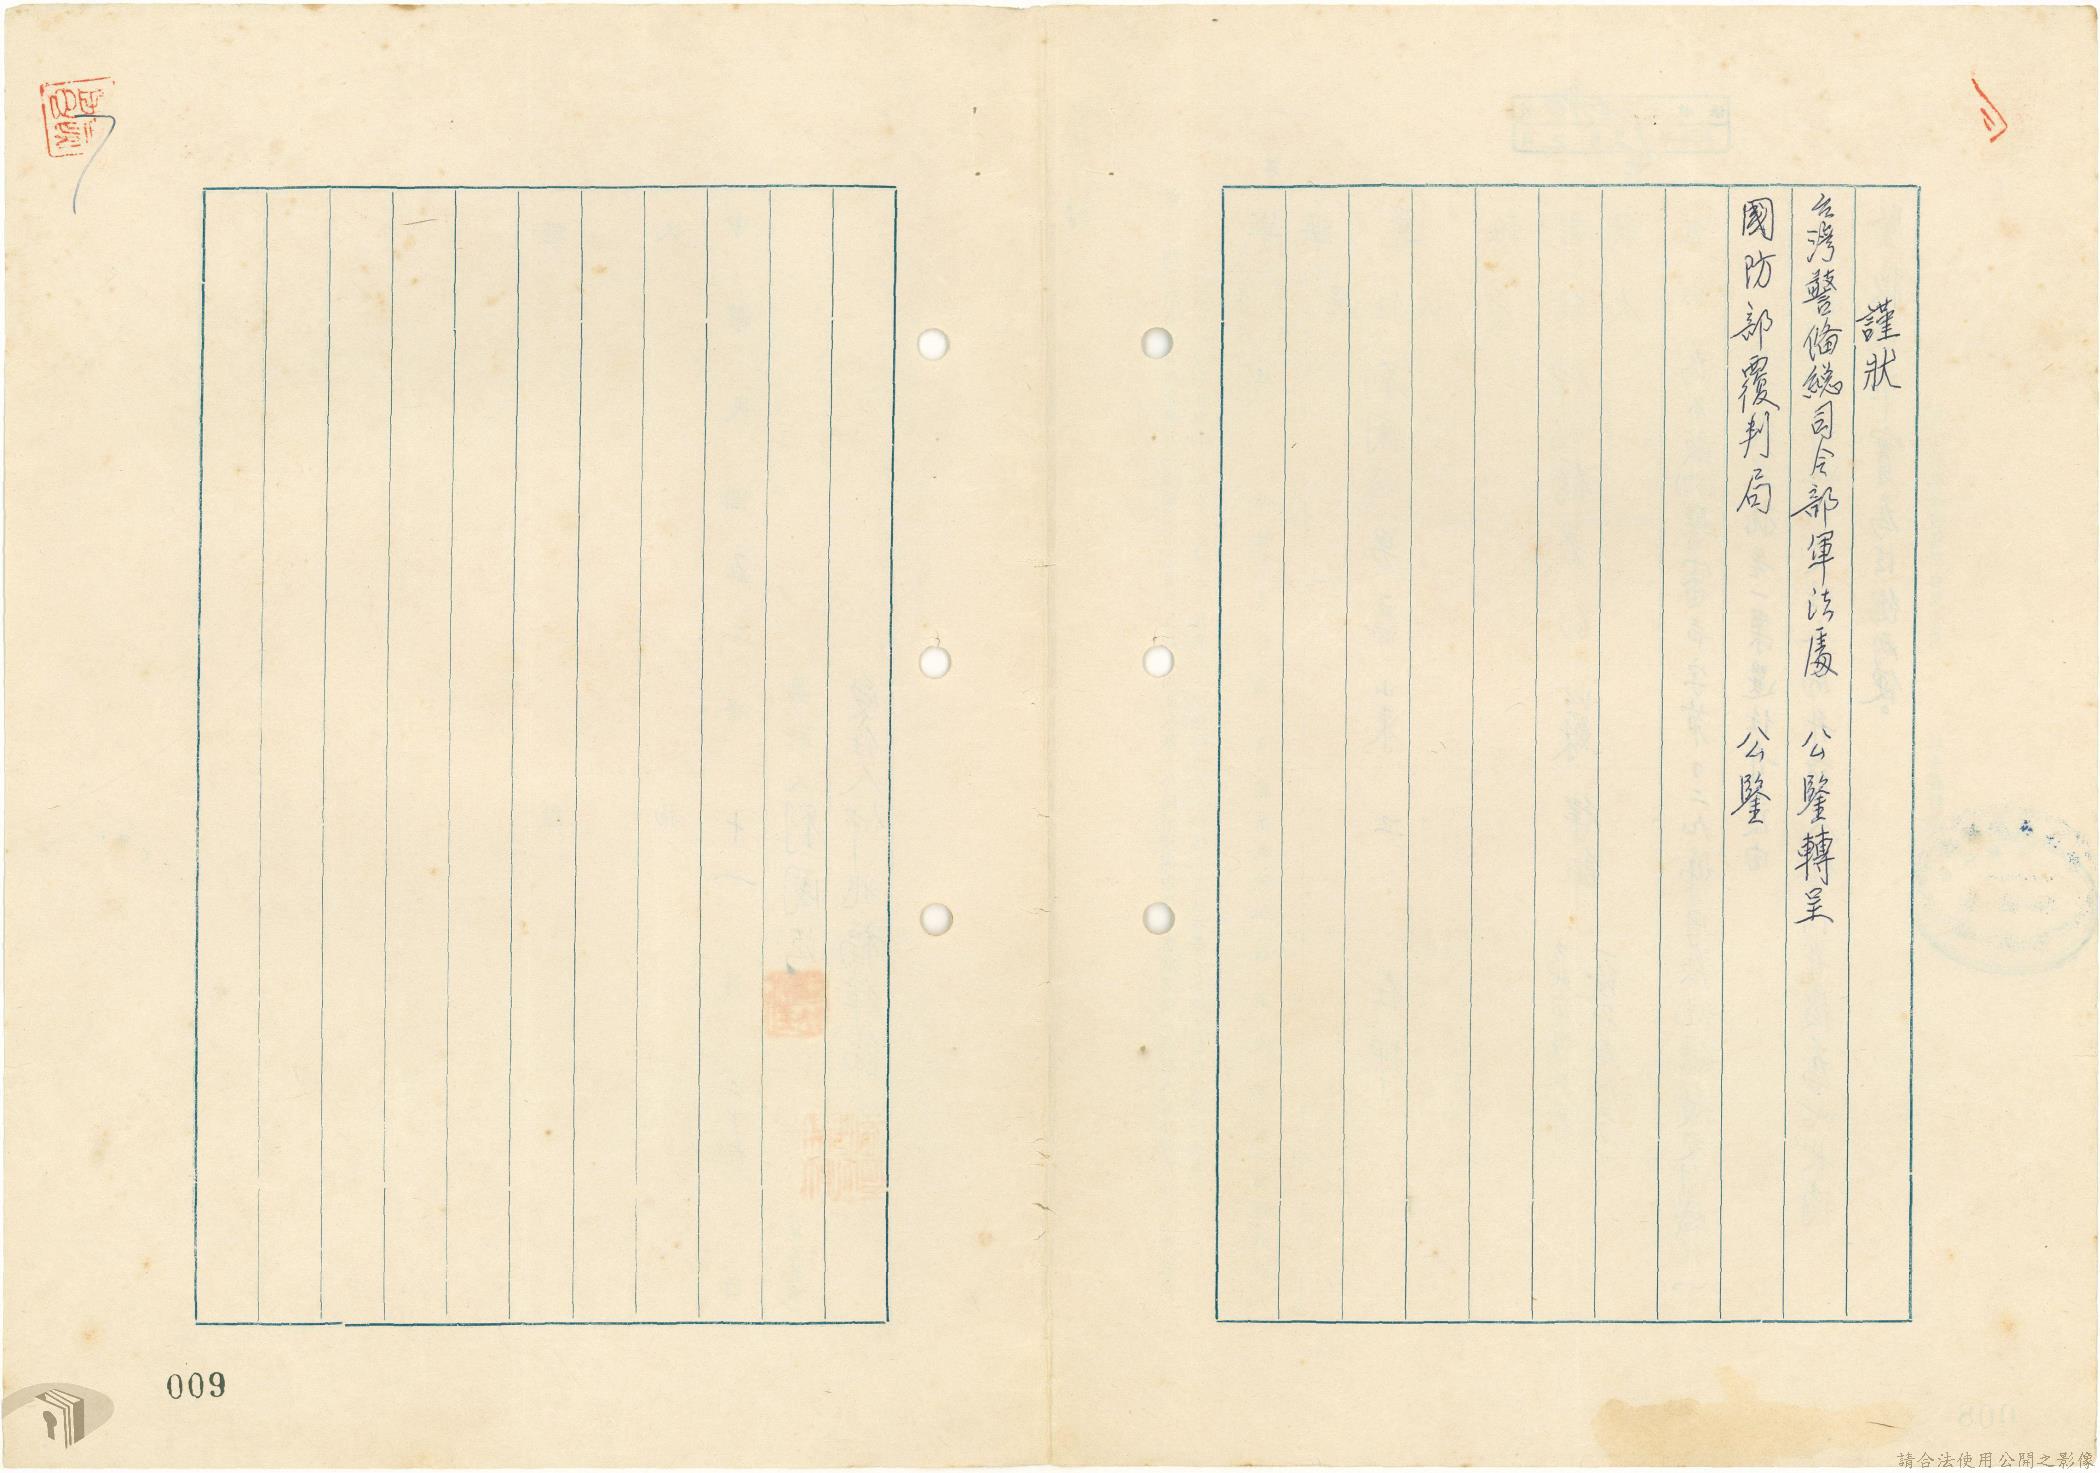 謹狀
台灣警備總司令部軍法處 公鑒轉呈
國防部覆判局 公鑒
009
請合法使用公開之影像